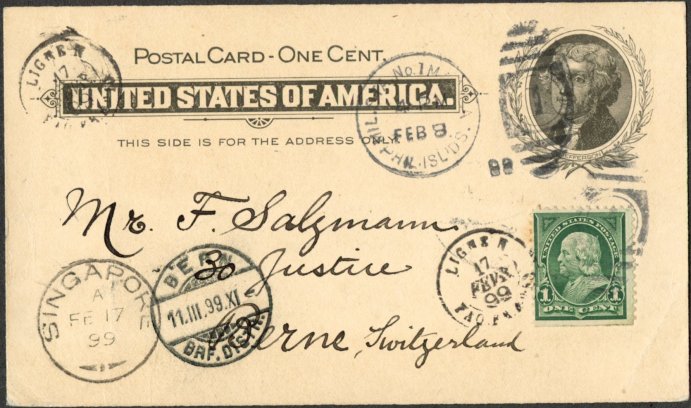 POSTAL CARD - ONE CENT.
UNITED STATES OF AMERICA.
THIS SIDE IS FOR THE ADDRESS ONLY.
LIGNE N
17
No. 1 M
FEB 8
PHIL. ISLDS.
JEFFERSON
Mr. F. Salzmann
Justice
Berne, Switzerland
SINGAPORE
A
FE 17
99
BERN
11.III.99.XI
BRF. DIST.
LIGNE N
17
FEVR.
99
UNITED STATES POSTAGE
1 1
ONE CENT